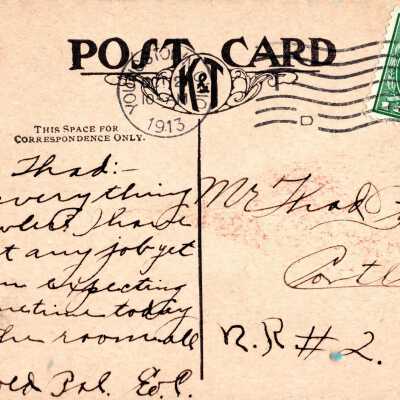 POST CARD
K&T
1913
D
THIS SPACE FOR
CORRESPONDENCE ONLY.
Thad:-
everything
I have
t any job yet
expecting
metime today
he room all
old Pal. E.C.
Mr Thad
Cortl
R.R #2.